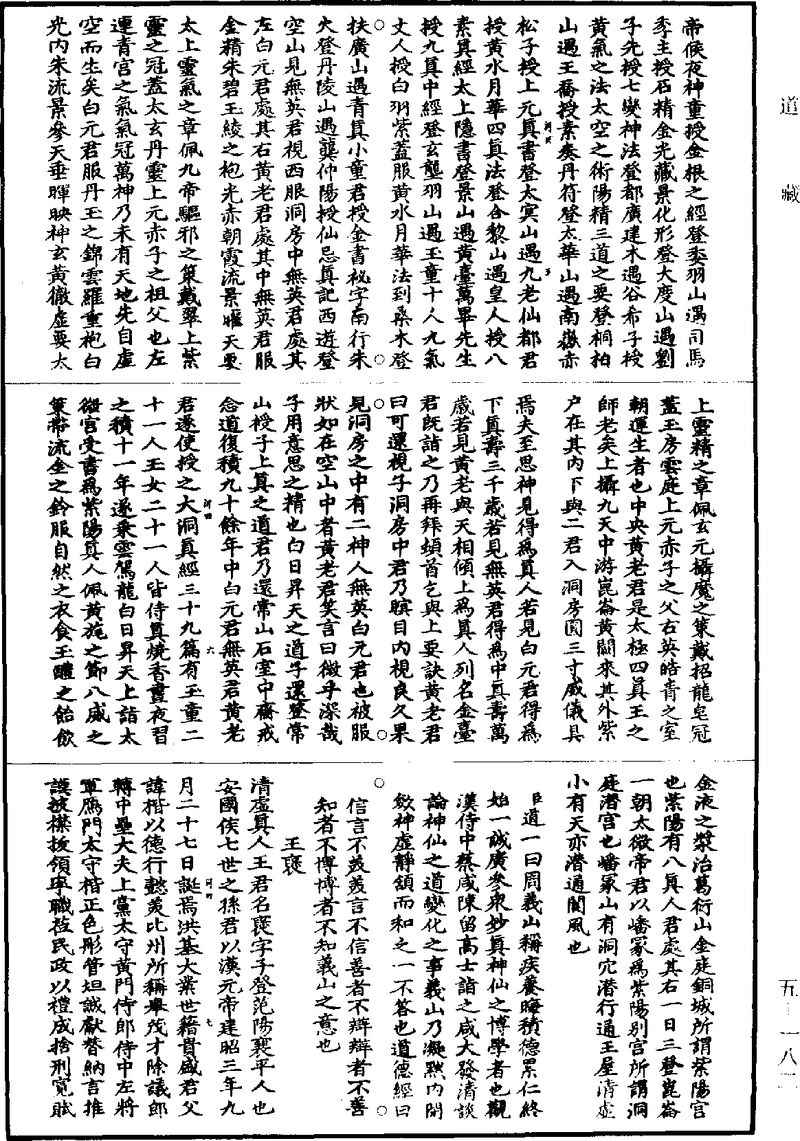 道藏
五—一八二
帝候夜神童授金根之經登委羽山遇司馬
季主授石精金光藏景化形登大度山遇劉
子先授七變神法登都廣建木遇谷希子授
黃氣之法太空之術陽精三道之要登桐柏
山遇王喬授素奏丹符登太華山遇南嶽赤
松子授上元真書登太冥山遇九老仙都君
授黃水月華四真法登合黎山遇皇人授八
素真經太上隱書登景山遇黃臺萬畢先生
授九真中經登玄壟羽山遇玉童十人九氣
丈人授白羽紫蓋服黃水月華法到桑木登
扶廣山遇青真小童君授金書祕字南行朱
火登丹陵山遇龔仲陽授仙忌真記西遊登
空山見無英君視西服洞房中無英君處其
左白元君處其右黃老君處其中無英君服
金精朱碧玉綾之袍光赤朝霞流景曜天要
太上靈氣之章佩九帝驅邪之策戴翠上紫
靈之冠蓋太玄丹靈上元赤子之祖父也左
連青宮之氣氣冠萬神乃未有天地先自虛
空而生矣白元君服丹玉之錦雲羅重袍白
光內朱流景參天垂暉映神玄黃徹虛要太
上靈精之章佩玄元攝魔之策戴招龍皂冠
蓋玉房雲庭上元赤子之父右英皓青之室
朝運生者也中央黃老君是太極四真王之
師老矣上攝九天中游崑崙黃闕來其外紫
户在其內下與二君入洞房圓三寸威儀具
焉夫至思神見得為真人若見白元君得為
下真壽三千歲若見無英君得為中真壽萬
歲若見黃老與天相傾上為真人列名金臺
君既詣之乃再拜頓首乞與上要訣黃老君
曰可還視子洞房中君乃瞑目內視良久果
見洞房之中有二神人無英白元君也被服
狀如在空山中者黃老君笑言曰微乎深哉
子用意思之精也白日昇天之道子還登常
山授子上真之道君乃還常山石室中齋戒
念道復積九十餘年中白元君無英君黃老
君遂使授之大洞真經三十九篇有玉童二
十一人玉女二十一人皆侍真燒香晝夜習
之積十一年遂乘雲駕龍白日昇天上詣太
微宮受書為紫陽真人佩黃旄之節八威之
策帶流金之鈴服自然之衣食玉醴之飴飲
金液之漿治葛衍山金庭銅城所謂紫陽宮
也紫陽有八真人君處其右一日三登崑崙
一朝太微帝君以嶓冢為紫陽別宮所謂洞
庭潛宮也嶓冢山有洞穴潛行通王屋清虛
小有天亦潛通閬風也
臣道一曰周義山稱疾養晦積德累仁終
始一誠廣參衆妙真神仙之博學者也觀
漢侍中蔡咸陳留高士詣之咸大發清談
論神仙之道變化之事義山乃凝默內閉
斂神虛靜頷而和之一不答也道德經曰
信言不美美言不信善者不辯辯者不善
知者不博博者不知義山之意也
王褒
清虛真人王君名褒字子登范陽襄平人也
安國侯七世之孫君以漢元帝建昭三年九
月二十七日誕焉洪基大業世籍貴盛君父
諱楷以德行懿美比州所稱舉茂才除議郎
轉中壘大夫上黨太守黃門侍郎侍中左將
軍鴈門太守楷正色彤管坦誠獻替納言推
謨披襟扳領宰職莅民政以禮成捨刑寬賦